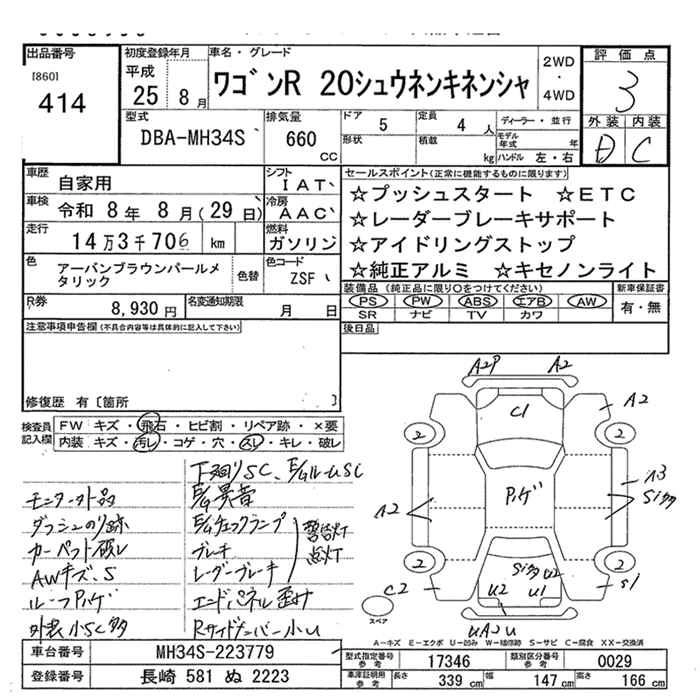 出品番号
[860]
414
初度登録年月
平成
25 8月
車名・グレード
ワゴンR 20シュウネンキネンシャ
2WD
・
4WD
評価点
3
外装 内装
D C
型式
DBA-MH34S
排気量
660
cc
ドア
5
定員
4 人
形状
積載
kg
ディーラー・並行
モデル年式 年
ハンドル 左・右
車歴
自家用
シフト
IAT
車検
令和 8年 8月(29日)
冷房
AAC
走行
14万3千706 km
燃料
ガソリン
色
アーバンブラウンパールメタリック
色替
色コード
ZSF
R券
8,930円
名変通知期限
月 日
セールスポイント(正常に機能するものに限ります)
☆プッシュスタート ☆ETC
☆レーダーブレーキサポート
☆アイドリングストップ
☆純正アルミ ☆キセノンライト
装備品 (純正品に限り○をつけてください)
PS PW ABS エアB AW
SR ナビ TV カワ
新車保証書
有・無
後日品
注意事項申告欄(不具合内容等は具体的に記入して下さい)
修復歴 有〔箇所 〕
検査員記入欄
FW キズ・飛石・ヒビ割・リペア跡・×要
内装 キズ・汚レ・コゲ・穴・スレ・キレ・破レ
下廻りSC、E/GルームSC
モニター不良
E/G異音
ダッシュのり跡
E/Gチェックランプ
カーペット破レ
ブレーキ
警告灯点灯
AWキズ、S
レーダーブレーキ
ルーフPハゲ
エンドパネル歪み
外装小SC多
Rサイドメンバー小U
A2P A2
C1
A2
2 2
Pハゲ
A2
A3
Si多
2 2
C2
Si多 U2
U2 U1
S1
UA2 U
スペア
A－キズ E－エクボ U－凹み W－補修跡 S－サビ C－腐食 XX－交換済
車台番号
MH34S-223779
登録番号
長崎 581 ぬ 2223
型式指定番号
参考
17346
類別区分番号
参考
0029
車庫証明用
参考
長さ
339 cm
幅
147 cm
高さ
166 cm